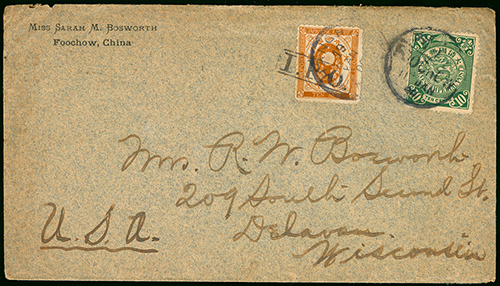 MISS SARAH M. BOSWORTH
FOOCHOW, CHINA
I.J.P.O.
Mrs. R. W. Bosworth
209 South Second St.
Delavan.
Wisconsin
U.S.A.